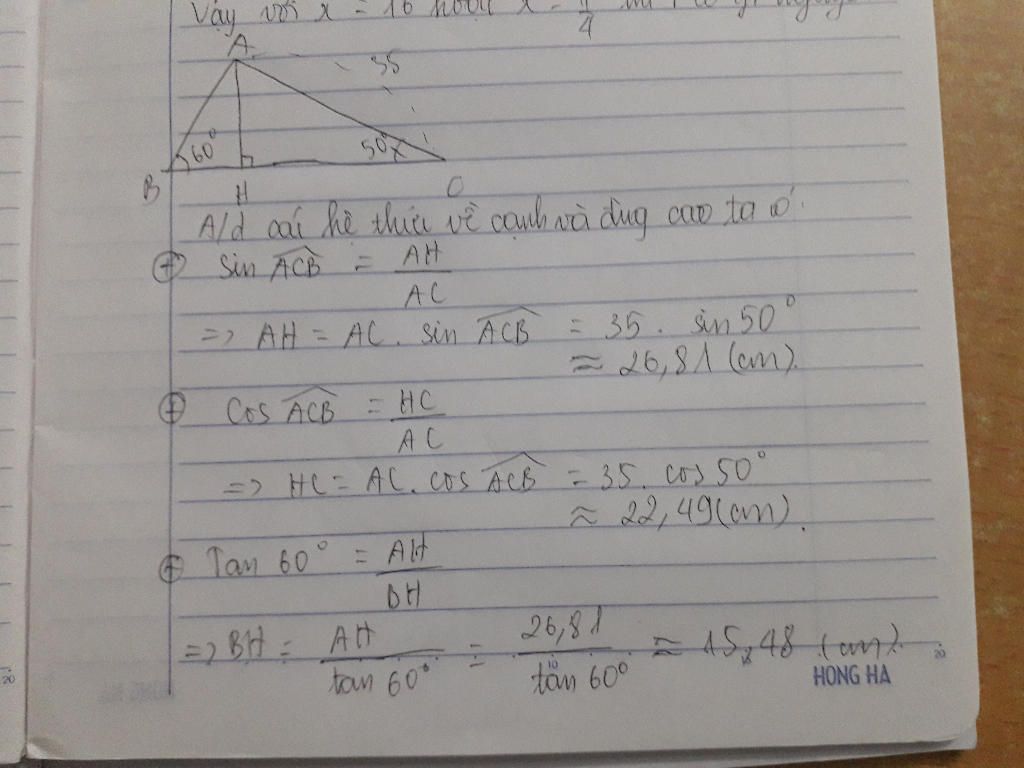 Vậy với x = 16 hoặc x =
4
A
35
60°
50°
B
H
C
A/d các hệ thức về cạnh và đường cao ta có
+ sin ACB = AH / AC
=> AH = AC . sin ACB = 35 . sin 50°
≈ 26,81 (cm).
+ Cos ACB = HC / AC
=> HC = AC . cos ACB = 35 . cos 50°
≈ 22,49 (cm).
+ Tan 60° = AH / BH
=> BH = AH / tan 60° = 26,81 / tan 60° ≈ 15,48 (cm).
HONG HA